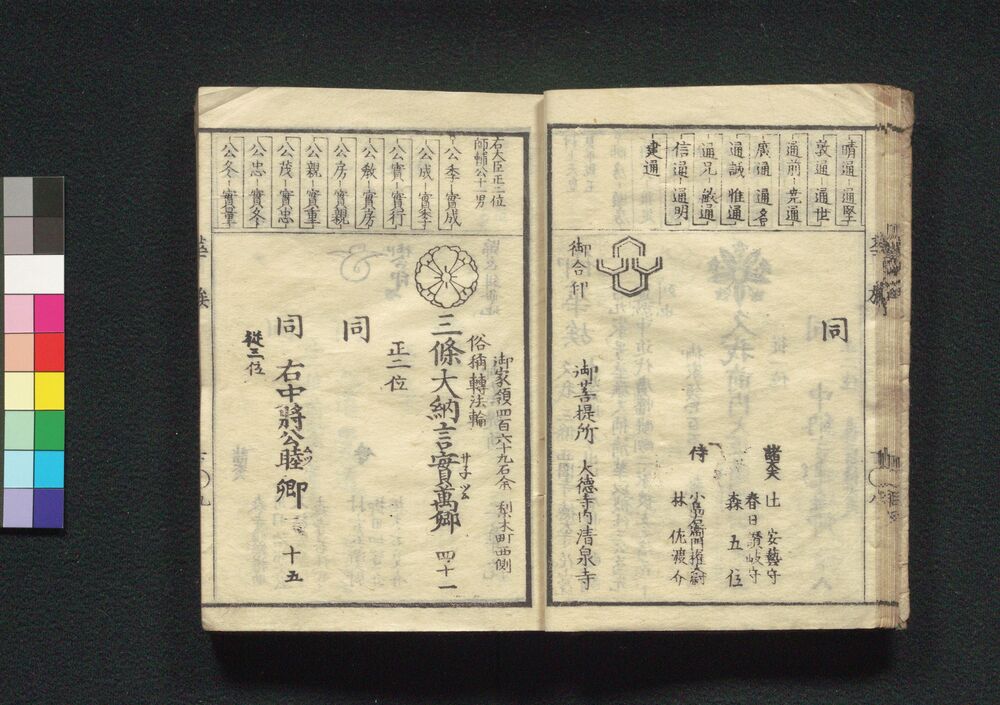 晴通 通堅
敦通 通世
通前 尭通
廣通 通名
通誠 雅通
通兄 敏通
信通 通明
建通
同
諸大夫
辻 安藝守
春日 讃岐守
森 五位
侍
林 佐渡介
御合印
御菩提所 大徳寺内清泉寺
右大臣正二位
師輔公十一男
公季 實成
公成 實季
公實 實行
公教 實房
公房 實親
公親 實重
公茂 實忠
公忠 實冬
公冬 實量
御家領四百六十九石余 梨木町西側
俗稱轉法輪
三條大納言實萬卿 四十一
正二位
同
同 右中將公睦卿 十五
從三位
華族